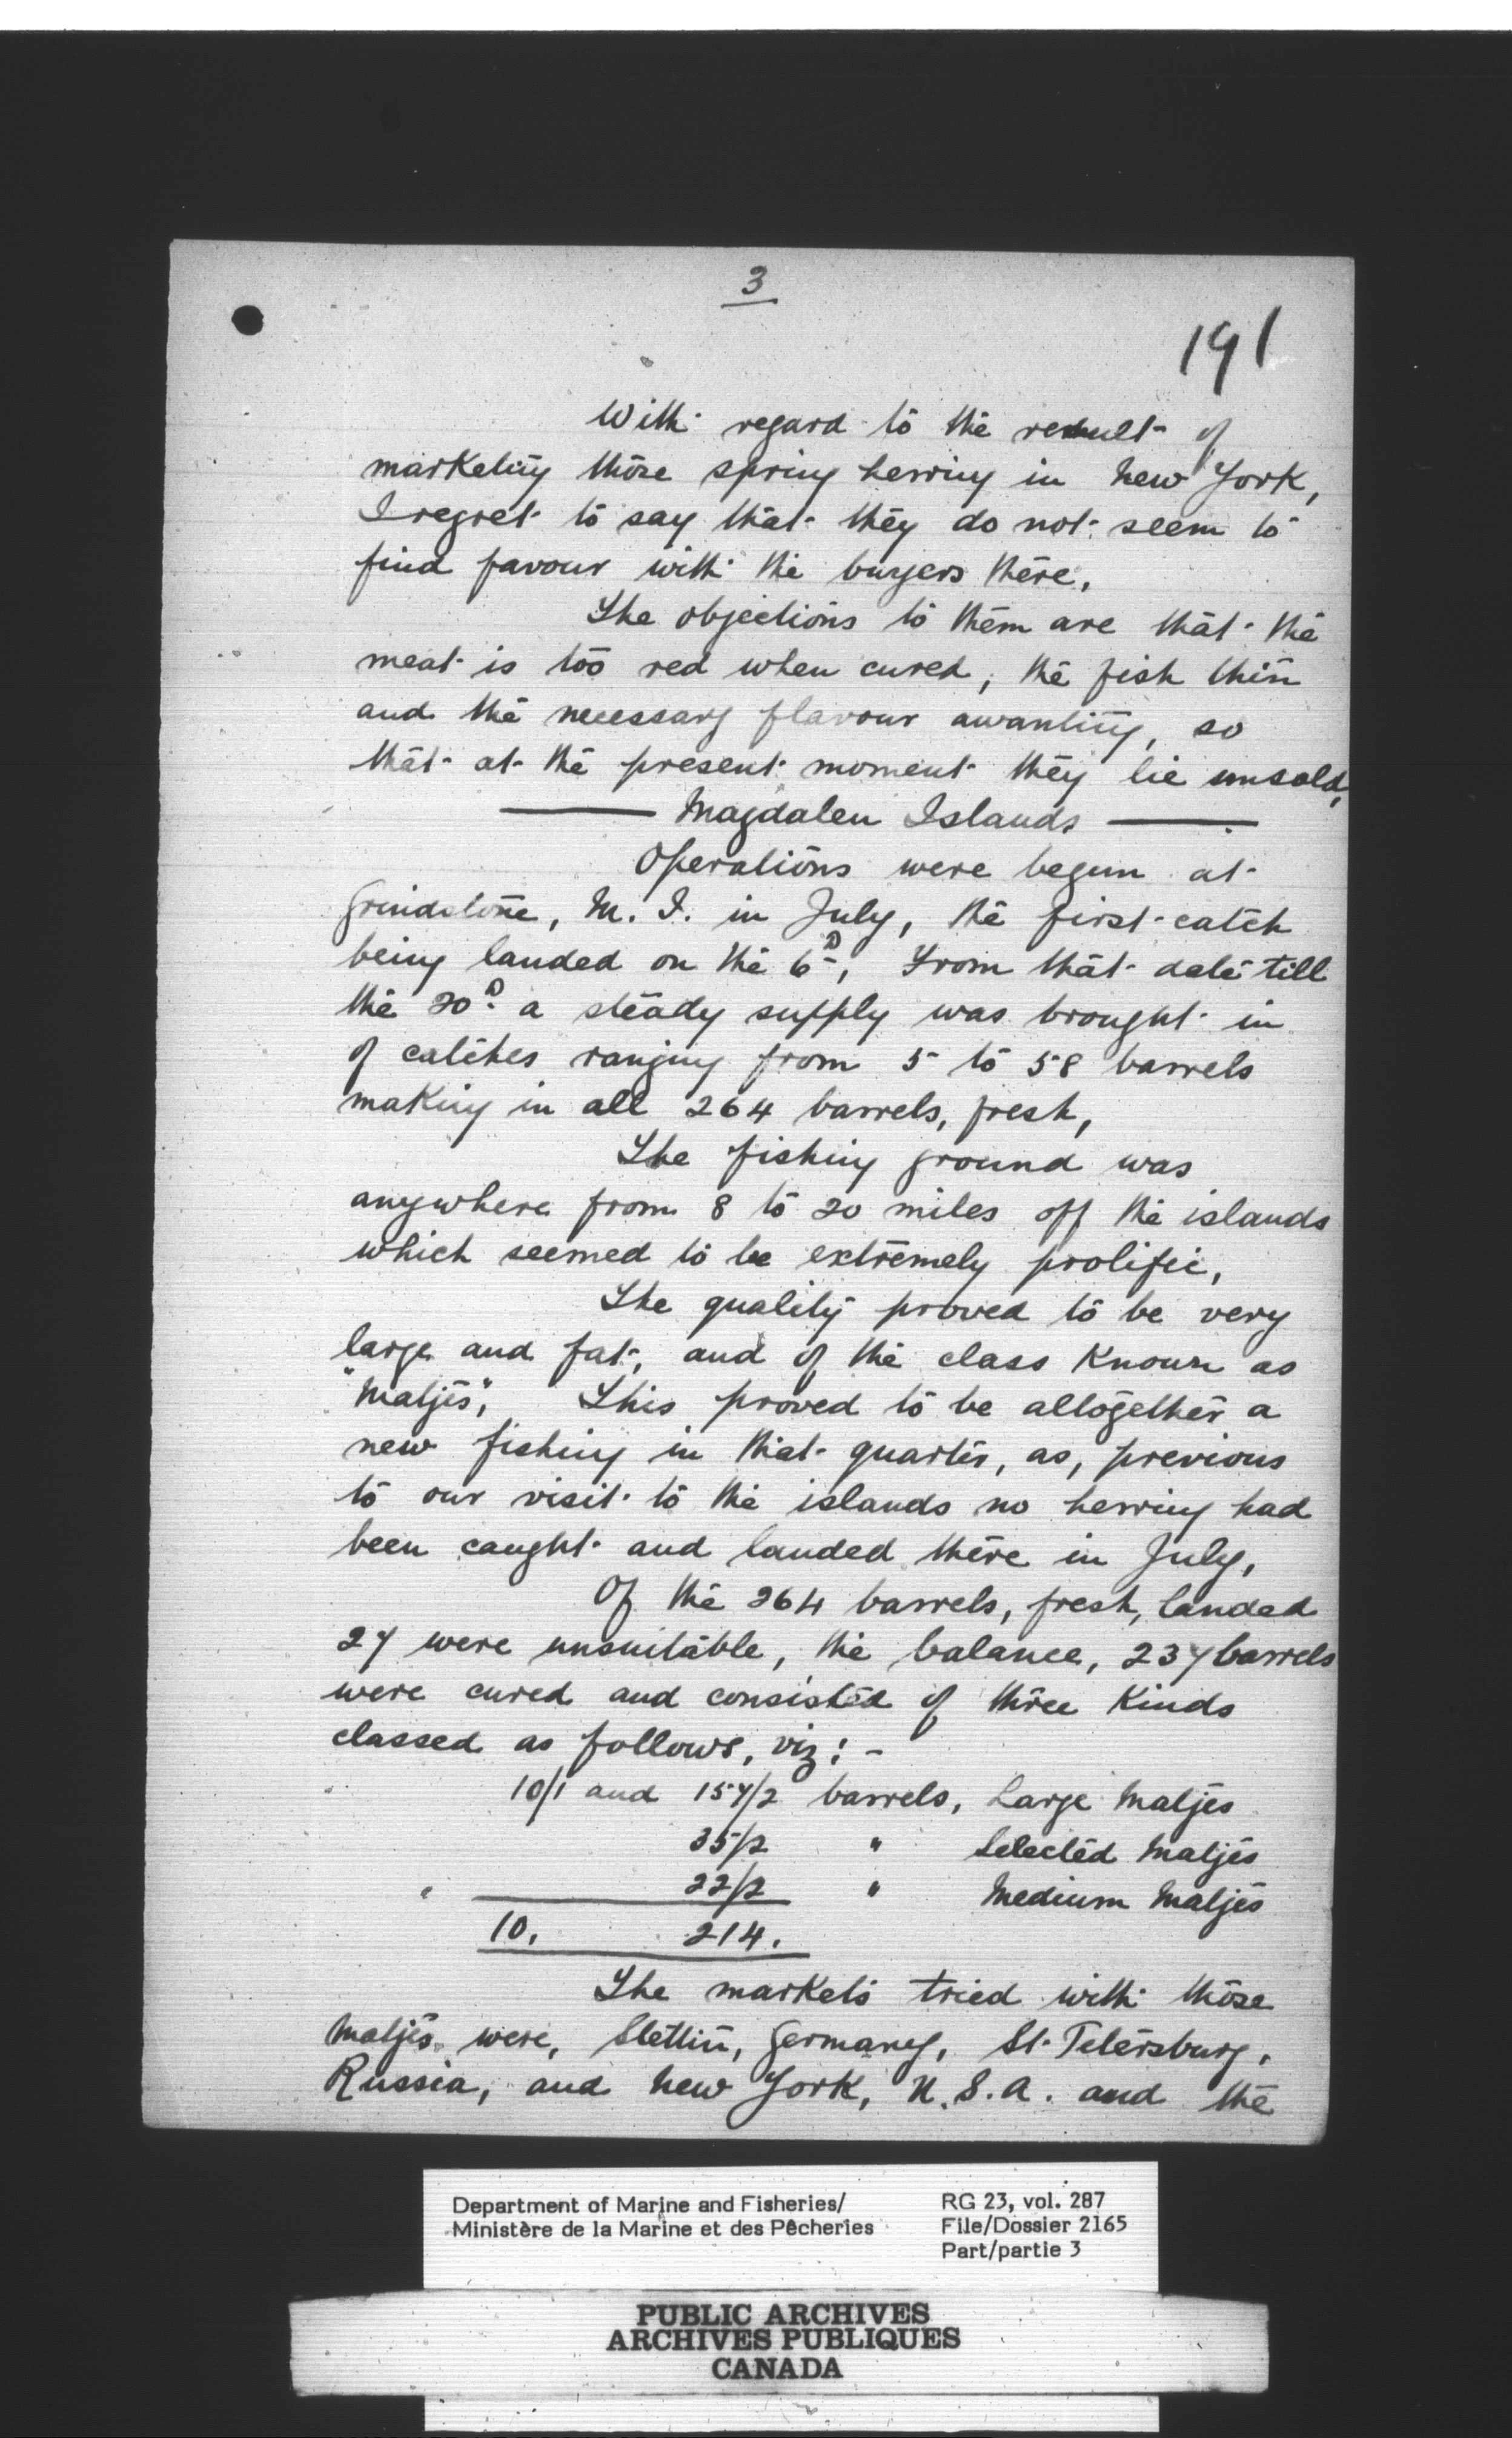 3
191
With regard to the result of
marketing those spring herring in New York,
I regret to say that they do not seem to
find favour with the buyers there.
The objections to them are that the
meat is too red when cured, the fish thin
and the necessary flavour awanting, so
that at the present moment they lie unsold,
Magdalen Islands
Operations were begun at
Grindstone, M. I. in July, the first catch
being landed on the 6th, From that date till
the 20th a steady supply was brought in
of catches ranging from 5 to 58 barrels
making in all 264 barrels, fresh,
The fishing ground was
anywhere from 8 to 20 miles off the islands
which seemed to be extremely prolific,
The quality proved to be very
large and fat, and of the class known as
"Matjes", This proved to be altogether a
new fishing in that quarter, as, previous
to our visit to the islands no herring had
been caught and landed there in July,
Of the 264 barrels, fresh, landed
27 were unsuitable, the balance, 237 barrels
were cured and consisted of three kinds
classed as follows, viz: -
10/1 and 157/2 barrels, Large Matjes
35/2 " Selected Matjes
22/2 " Medium Matjes
10. 214.
The markets tried with those
Matjes were, Stettin, Germany, St. Petersburg,
Russia, and New York, U.S.A. and the
Department of Marine and Fisheries/
Ministère de la Marine et des Pêcheries
RG 23, vol. 287
File/Dossier 2165
Part/partie 3
PUBLIC ARCHIVES
ARCHIVES PUBLIQUES
CANADA